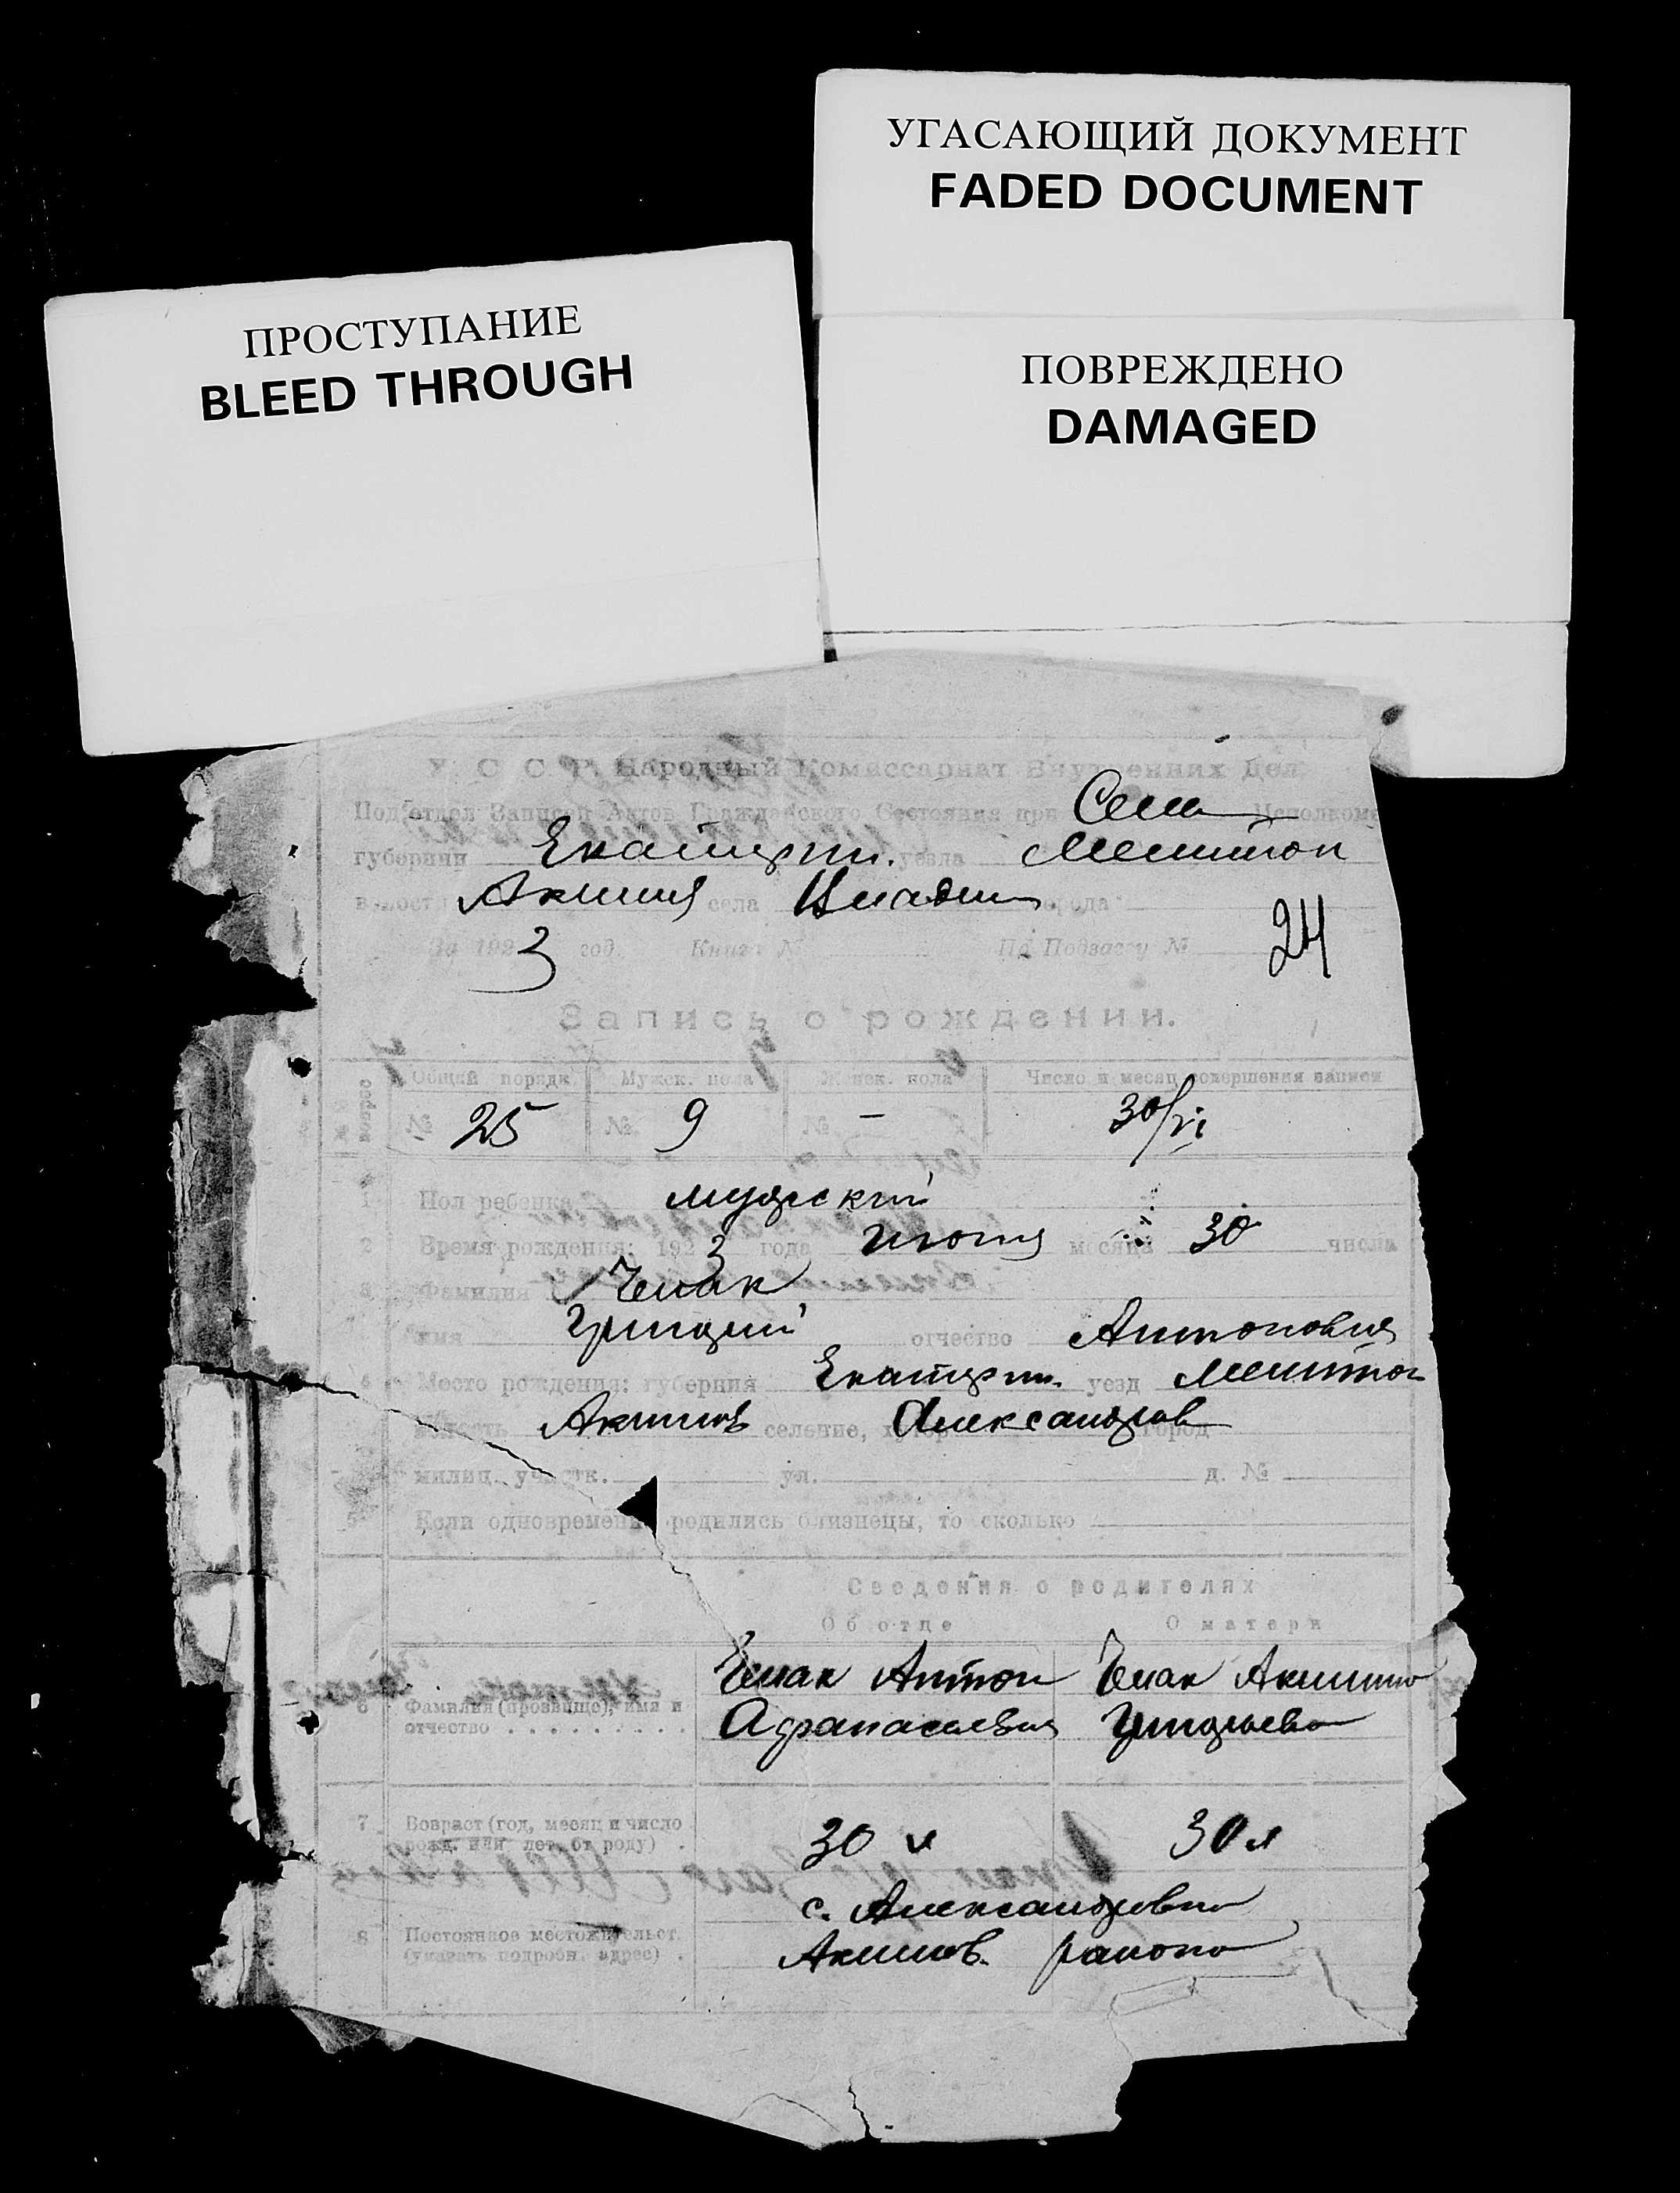 УГАСАЮЩИЙ ДОКУМЕНТ
FADED DOCUMENT
ПРОСТУПАНИЕ
BLEED THROUGH
ПОВРЕЖДЕНО
DAMAGED
У С С Р Народный Комиссариат Внутренних Дел.
Подотдел Записей Актов Гражданского Состояния при Исполкоме
губернии Екатерин. уезда
волости села города
За 1923 год. Книга № По Подзагсу № 24
Запись о рождении.
№№ вопрос
Общий порядк. Мужск. пола Женск. пола Число и месяц совершения записи
№ 25 № 9 № — 30/VI
1 Пол ребенка мужский
2 Время рождения: 1923 года Июня месяца 30 числа
3 Фамилия
имя Григорий отчество Антонович
4 Место рождения: губерния Екатерин. уезд
волость Акимов селение, хутор Александров город
милиц. участк. ул. д. №
5 Если одновременно родились близнецы, то сколько
Сведения о родителях
Об отце О матери
6 Фамилия (прозвище), имя и отчество
Антон
Афанасиевич
7 Возраст (год, месяц и число рожд. или лет от роду)
30 л 30 л
8 Постоянное местожительст. (указать подробн. адрес)
с. Александровка
Акимов. района